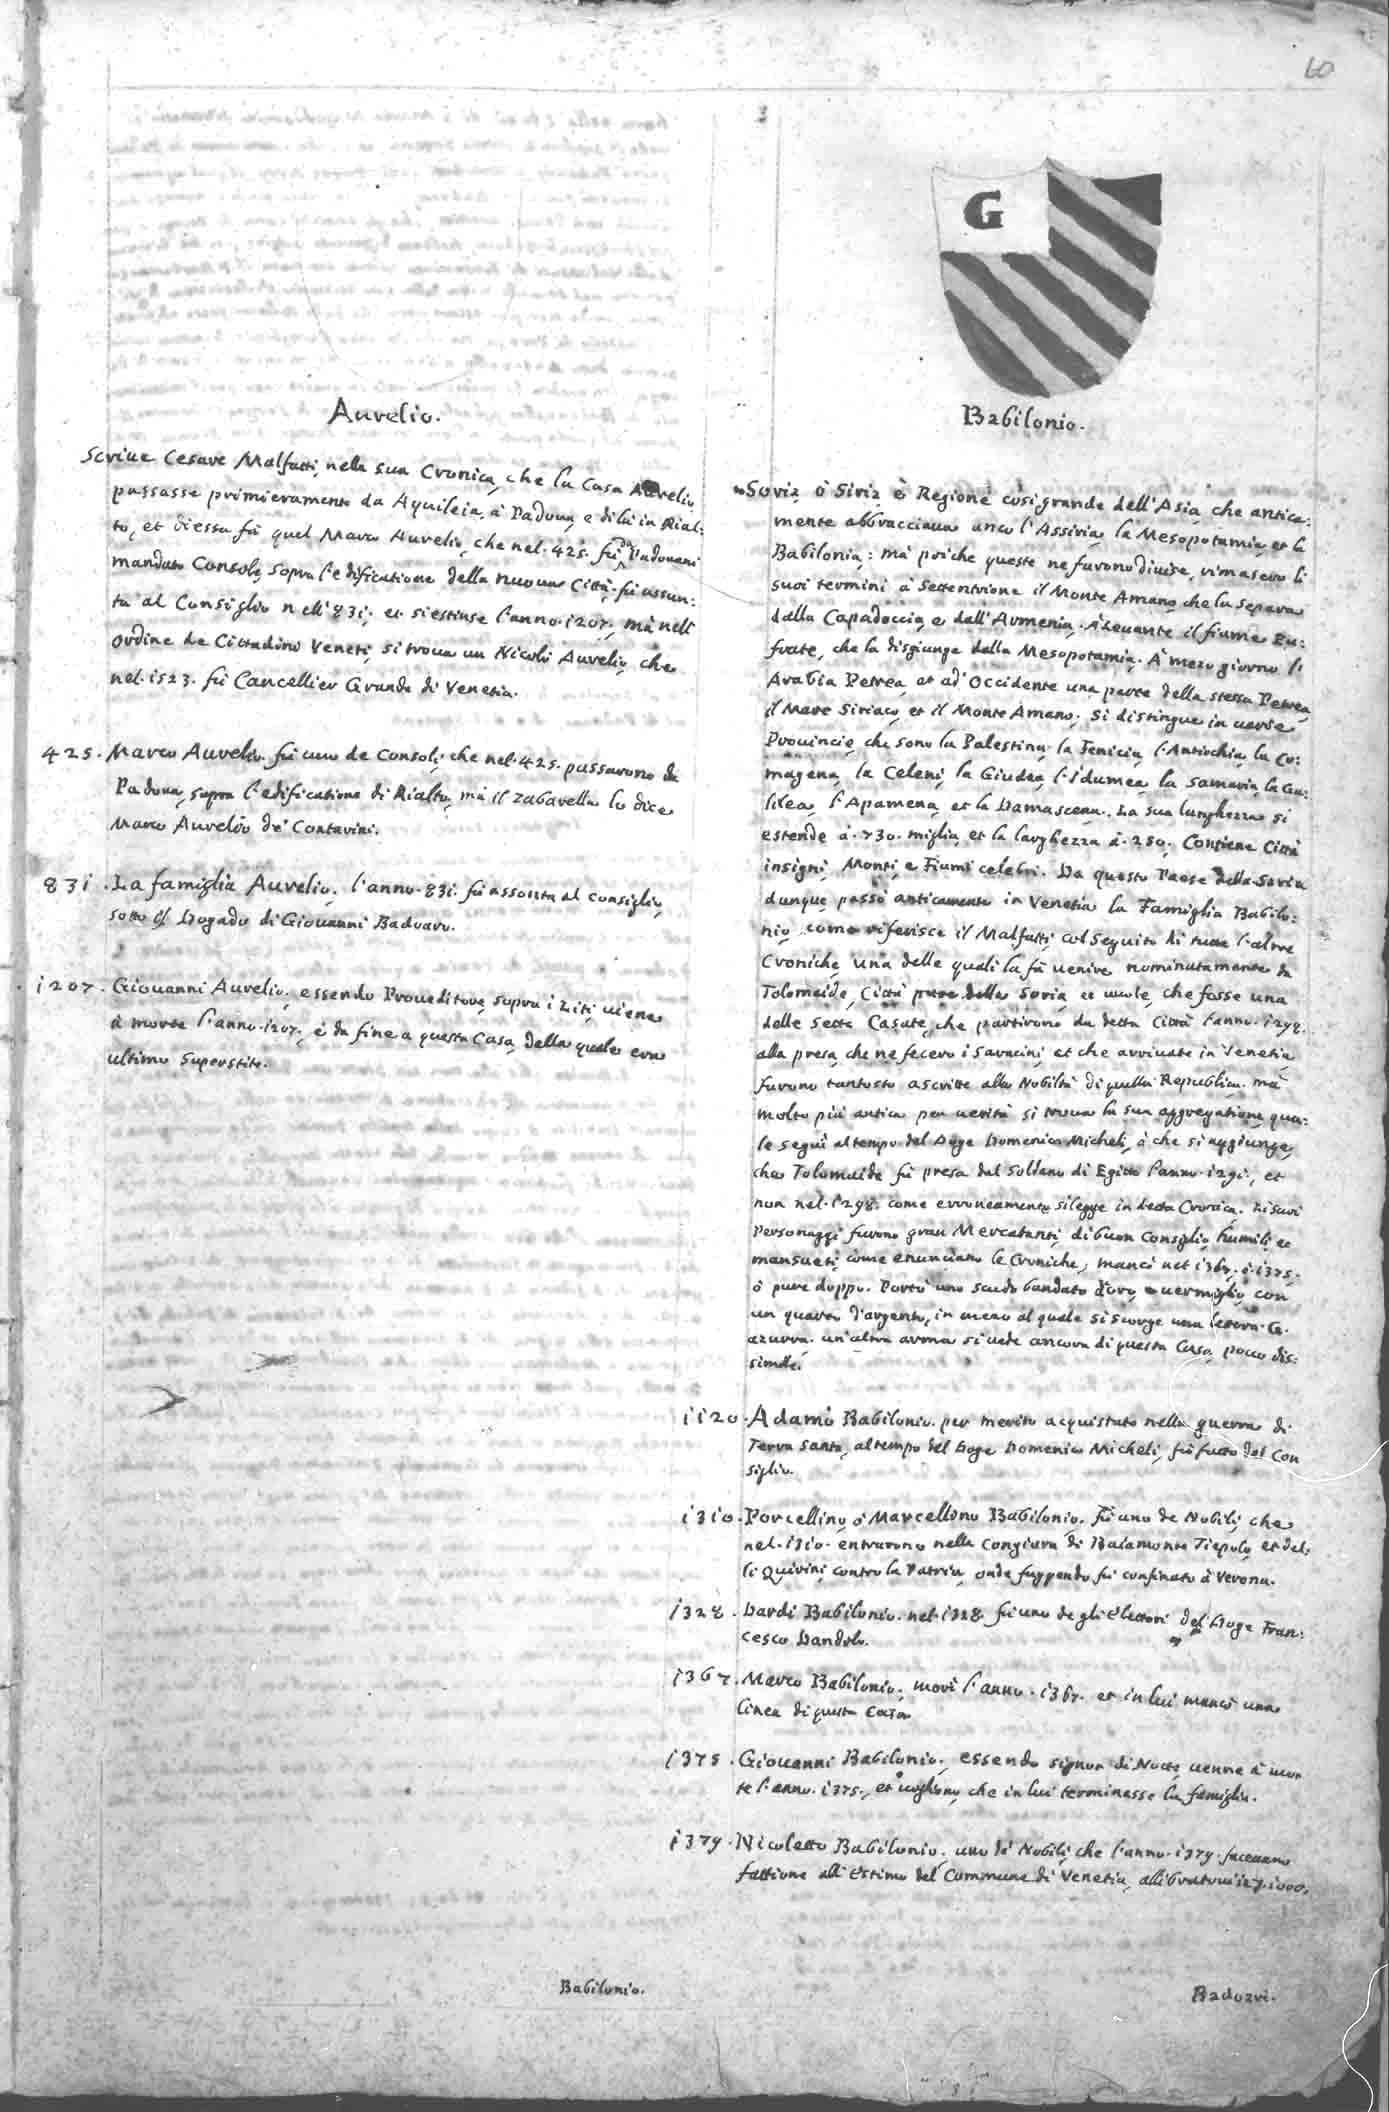 60
Aurelio.
Scriue Cesare Malfatti, nella sua Cronica, che la Casa Aurelio
passasse primieramente da Aquileia, à Padoua, e di là in Rial:
to, et di essa fù quel Marco Aurelio, che nel 425. fù da Padouani
mandato Console, sopra l'edificatione della nuoua Città. fù assun:
ta al Consiglio nell' 831; et si estinse l'anno 1207. mà nell'
ordine de Cittadini Veneti, si troua un Nicolò Aurelio, che
nel 1523. fù Cancellier Grande di Venetia.
425. Marco Aurelio. fù uno de Consoli, che nel 425. passarono da
Padoua, sopra l'edificatione di Rialto, mà il Zabarella lo dice
Marco Aurelio de' Contarini.
831. La famiglia Aurelio, l'anno 831. fù assonta al Consiglio,
sotto il Dogado di Giouanni Badoaro.
1207. Giouanni Aurelio, essendo Proueditore, sopra i Liti, uiene
à morte l'anno 1207. e da fine a questa Casa, della quale era
ultimo superstite.
Babilonio.
G
Babilonio.
Soria ò Siria è Regione cosi grande dell'Asia, che antica:
mente abbracciaua anco l'Assiria, la Mesopotamia et la
Babilonia: mà poiche queste ne furono diuise, rimasero li
suoi termini à Settentrione il Monte Amano, che la separa
dalla Capadoccia, e dall'Armenia. À Leuante il fiume Eu:
frate, che la disgiunge dalla Mesopotamia. À mezo giorno l'
Arabia Petrea, et ad Occidente una parte della stessa Petrea,
il Mare Siriaco, et il Monte Amano. Si distingue in uarie
Prouincie, che sono la Palestina, la Fenicia, l'Antiochia, la Co:
magena, la Celeni, la Giudea, l'Idumea, la Samaria, la Ga:
lilea, l'Apamena, et la Damascena. La sua lunghezza si
estende à 730. miglia, et la larghezza à 280. Contiene Città
insigni, Monti, e Fiumi celebri. Da questo Paese della Soria
dunque, passò anticamente in Venetia la Famiglia Babilo:
nio, come riferisce il Malfatti, col seguito di tutte l'altre
Croniche, una delle quali la fà uenire nominatamente da
Tolomaide, Città pure della Soria, et uuole, che fosse una
delle sette Casate, che partirono da detta Città l'anno 1298.
alla presa, che ne fecero i Saracini, et che arriuate in Venetia,
furono tantosto ascritte alla Nobiltà di quella Republica. mà
molto più antica per uerità si troua la sua aggregatione, qua:
le seguì al tempo del Doge Domenico Micheli, à che si aggiunge,
che Tolomaide fù presa dal Soldano di Egitto l'anno 1291, et
non nel 1298. come erroneamente si legge in detta Cronica. Li suoi
Personaggi furono gran Mercatanti, di buon Consiglio, humili, et
mansueti, come enunciano le Croniche, mancò nel 1367, ò 1375.
ò pure doppo. Portò uno scudo bandato d'oro, e uermiglio, con
un quarto d'argento, in mezo al quale si scorge una lettera G.
azurra. un'altra arma si uede ancora di questa Casa, poco dis:
simile.
1120. Adamo Babilonio. per merito acquistato nella guerra di
Terra Santa, al tempo del Doge Domenico Micheli, fù fatto del Con
siglio.
1310. Porcellino, ò Marcellino Babilonio. fù uno de Nobili, che
nel 1310. entrarono nella Congiura di Baiamonte Tiepolo, et del:
li Quirini, contro la Patria, onde fuggendo fù confinato à Verona.
1328. Dardi Babilonio. nel 1328. fù uno de gli Elettori del Doge Fran:
cesco Dandolo.
1367. Marco Babilonio, morì l'anno 1367. et in lui mancò una
linea di questa Casa.
1375. Giouanni Babilonio, essendo signor di Notte, uenne à mor
te l'anno 1375, et uogliono, che in lui terminasse la famiglia.
1379. Nicoletto Babilonio, uno de' Nobili, che l'anno 1379. faceuano
fattione all'Estimo del Commune di Venetia,
Badoari.